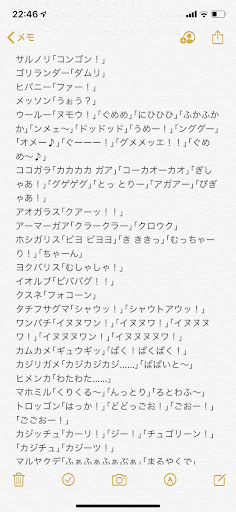 22:46
メモ
サルノリ「コンゴン！」
ゴリランダー「ダムリ」
ヒバニー「ファー！」
メッソン「うぉう？」
ウールー「ヌモウ！」「ぐめめ」「にひひひ」「ふかふか
か」「ンメェ〜」「ドッドッド」「うめー！」「ングググー」
「オメー♪」「ぐーーー！」「グメメッエ！！」「ぐめ
め〜♪」
ココガラ「カカカカ ガア」「コーカオーカオ」「ぎし
ゃあ！」「グゲゲゲ」「とっ とりー」「アガアー」「ぴぎ
ゃあ！」
アオガラス「クアーッ！！」
アーマーガア「クラークラー」「クロウク」
ホシガリス「ピヨ ピヨヨ」「き ききっ」「むっちゃー
り！」「ちゃーん」
ヨクバリス「むしゃしゃ！」
イオルブ「ビバババ！！」
クスネ「フォコーン」
タチフサグマ「シャウッ！」「シャウトアウッ！」
ワンパチ「イヌヌワン！」「イヌヌワ！」「イヌヌヌ
ワ！」「イヌヌヌワン！」「イヌヌヌヌワ！」
カムカメ「ギュウギッ」「ばく！ばくばく！」
カジリガメ「カジカジカジ……」「ばばいと〜」
ヒメンカ「わたわた……」
マホミル「くりくる〜」「んっとり」「ろとわふ〜」
トロッゴン「はっか！」「どどっごお！」「ごおー！」
「ごごおー！」
カジッチュ「カーリ！」「ジー！」「チュゴリーン！」
「カジチュ」「カジーツ！」
マルヤクデ「ふぁふぁふぁぶぁ」「まるやくで」